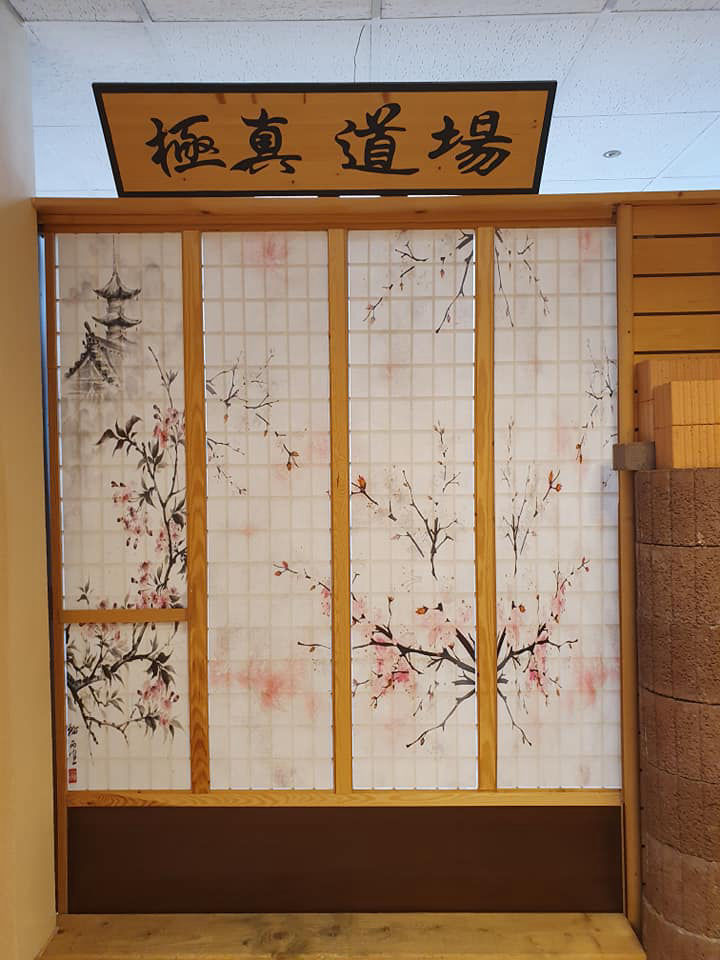 極真道場